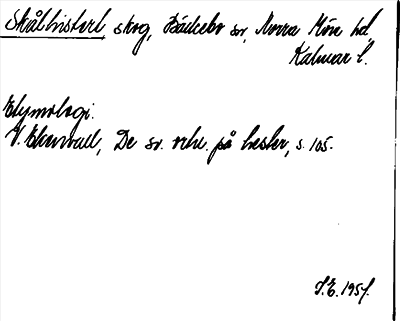 Skålbisterl, skog, Bäckebo sn, Norra Möre hd,
Kalmar l.
Etymologi.
V. Ekenvall, De sv. ortn. på hester, s. 105.
S.E. 1957.